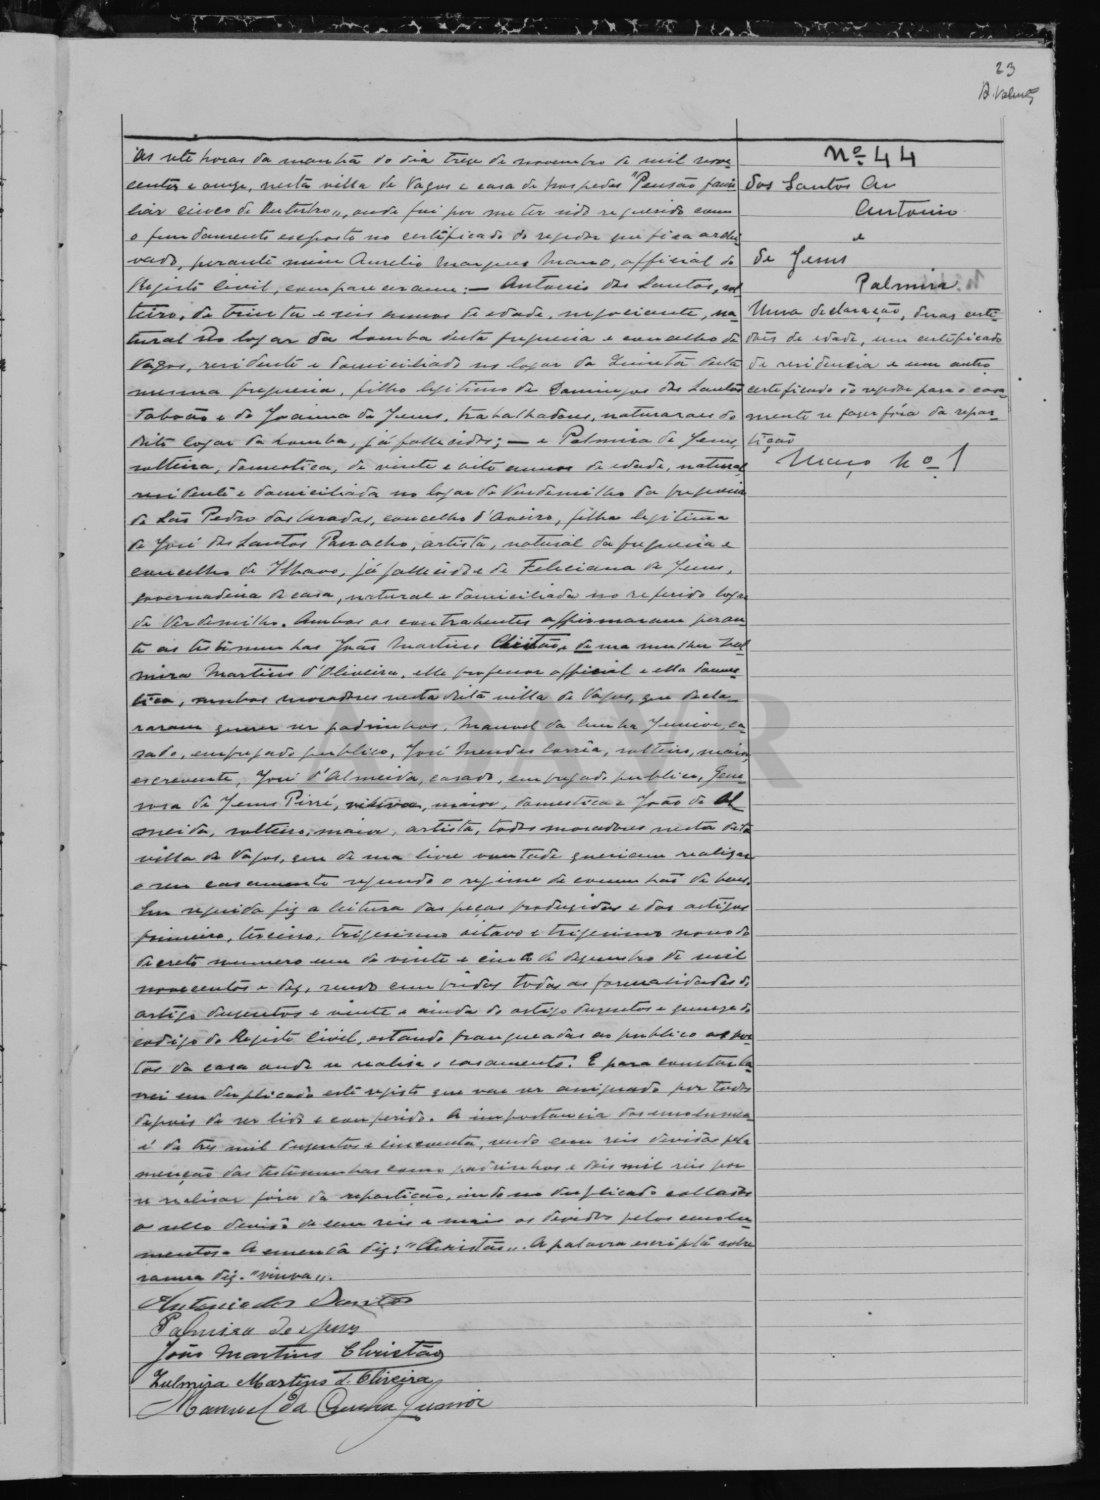 23
Nº 44
dos Santos
Antonio
e
de Jesus
Palmira
Uma declaração, duas certi-
dões de edade, um certificado
de residencia e um outro
certificado do regedor para o casa-
mento se fazer fóra da repar-
tição
Maço Nº 1
As sete horas da manhã do dia treze de novembro de mil nove-
centos e onze, nesta villa de Vagos e casa de hospedes "Pensão fami-
liar cinco de Outubro", onde fui por me ter sido requerido com
o fundamento exposto no certificado do regedor que fica archi-
vado, perante mim Aurelio Marques Mano, official do
Registo Civil, compareceram: — Antonio dos Santos, sol-
teiro, de trinta e seis annos de edade, negociante, na-
tural do logar da Lomba desta freguesia e concelho de
Vagos, residente e domiciliado no logar da Quintã desta
mesma freguesia, filho legitimo de Domingos dos Santos
e de Joanna de Jesus, trabalhadores, naturaes do
dito logar da Lomba, já fallecidos; — e Palmira de Jesus,
solteira, domestica, de vinte e oito annos de edade, natural
residente e domiciliada no logar de Verdemilho da freguesia
de São Pedro das Aradas, concelho d'Aveiro, filha legitima
de José dos Santos Parracho, artista, natural da freguesia e
concelho de Ilhavo, já fallecido e de Feliciana de Jesus,
governadeira de casa, natural e domiciliada no referido logar
de Verdemilho. Ambos os contrahentes affirmaram peran-
te as testemunhas João Martins Christão, e sua mulher Zul-
mira Martins d'Oliveira, elle professor official e ella domes-
tica, ambos moradores nesta dita villa de Vagos, que decla-
raram querer ser padrinhos, Manuel da Cunha Junior, ca-
sado, empregado publico, José Mendes Corrêa, solteiro, maior,
escrevente, José d'Almeida, casado, empregado publico, Gene-
rosa de Jesus Pirré, viuva, maior, domestica e João de Al-
meida, solteiro, maior, artista, todos moradores nesta dita
villa de Vagos, que de sua livre vontade queriam realizar
o seu casamento segundo o regime de communhão de bens.
Em seguida fiz a leitura das peças produzidas e dos artigos
primeiro, terceiro, trigesimo oitavo e trigesimo nono do
decreto numero um de vinte e cinco de dezembro de mil
novecentos e dez, sendo cumpridas todas as formalidades do
artigo duzentos e vinte e ainda do artigo duzentos e quinze do
codigo do Registo Civil, estando franqueadas ao publico as por-
tas da casa onde se realisa o casamento. E para constar la-
vrei em duplicado este registo que vae ser assignado por todos
depois de ser lido e conferido. A importancia dos emolumentos
é de tres mil duzentos e cincoenta, sendo cem reis devidos pela
menção das testemunhas como padrinhos e dois mil reis por
se realisar fóra da repartição, indo no duplicado collados
o sello devido de cem reis e mais os devidos pelos emolu-
mentos. A emenda diz: "Christão". A palavra escripta sobre
rasura diz. "viuva".
Antonio dos Santos
Palmira de Jesus
João Martins Christão
Zulmira Martins d'Oliveira
Manuel da Cunha Junior
ADAVR